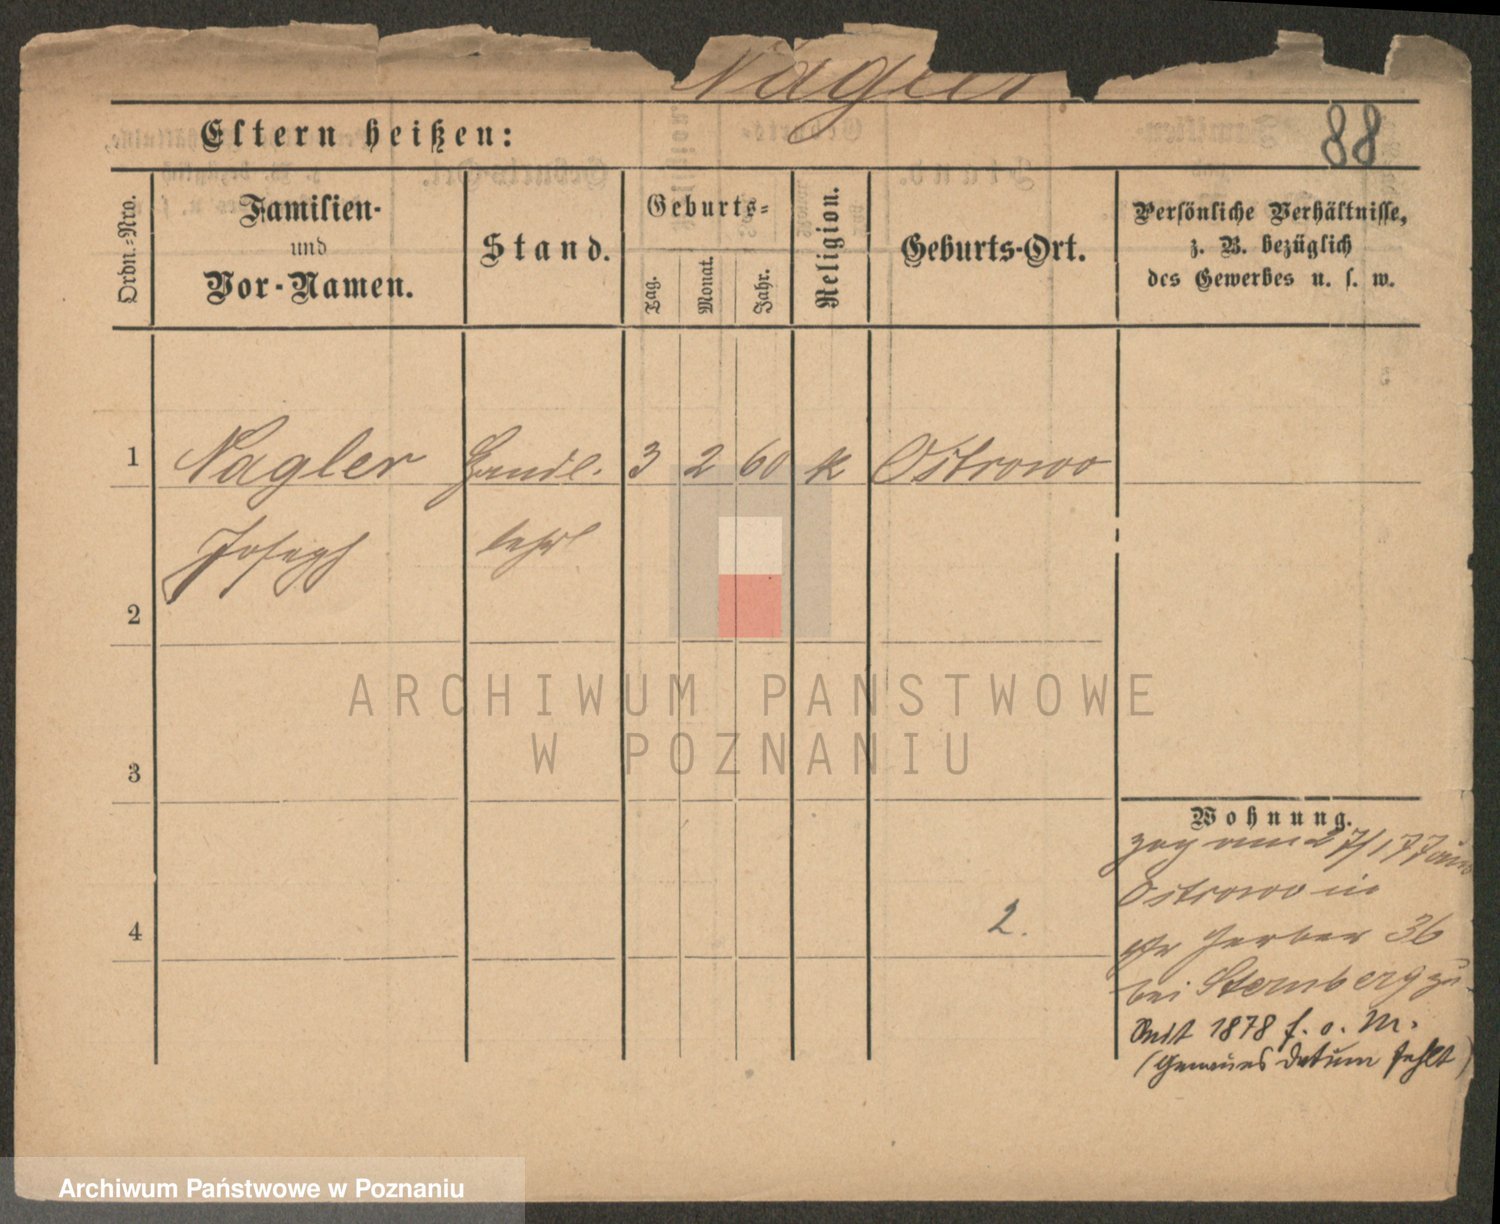 Nagler
Eltern heißen:
88
Ordn.-Nro.
Familien-
und
Vor-Namen.
Stand.
Geburts-
Tag.
Monat.
Jahr.
Religion.
Geburts-Ort.
Persönliche Verhältnisse,
z. B. bezüglich
des Gewerbes u. s. w.
1 Nagler Handl. 3 2 60 k Ostrowo
Joseph lehrl
2
3
4
2.
Wohnung.
zog am 27/1 77 aus
Ostrowo in
Gerber 36
bei Sternberg zu
Seit 1878 f. o. M.
(Genaues Datum fehlt)
ARCHIWUM PANSTWOWE
W POZNANIU
Archiwum Państwowe w Poznaniu